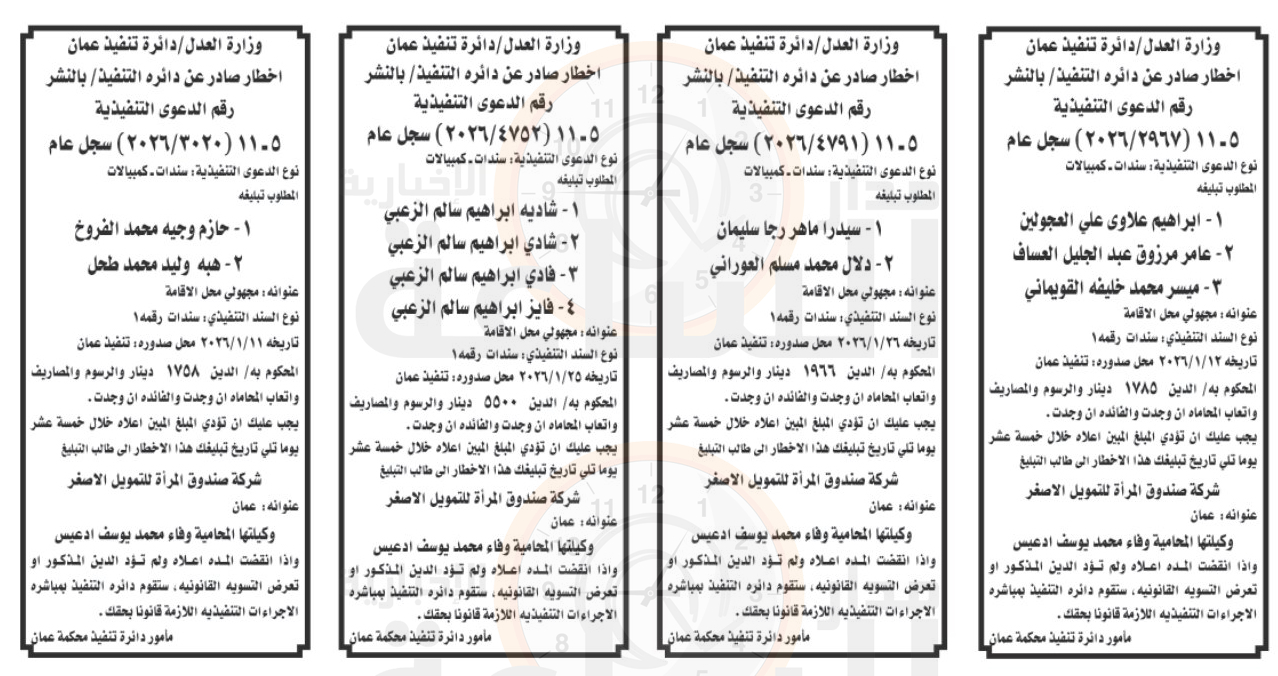 وزارة العدل/دائرة تنفيذ عمان
اخطار صادر عن دائره التنفيذ/ بالنشر
رقم الدعوى التنفيذية
٥ـ١١ (٢٠٢٦/٢٩٦٧) سجل عام
نوع الدعوى التنفيذية: سندات ـ كمبيالات
المطلوب تبليغه
١- ابراهيم علاوى علي العجولين
٢- عامر مرزوق عبد الجليل العساف
٣- ميسر محمد خليفه القويماني
عنوانه: مجهولي محل الاقامة
نوع السند التنفيذي: سندات رقمه١
تاريخه ٢٠٢٦/١/١٢ محل صدوره: تنفيذ عمان
المحكوم به/ الدين ١٧٨٥ دينار والرسوم والمصاريف
واتعاب المحاماه ان وجدت والفائده ان وجدت.
يجب عليك ان تؤدي المبلغ المبين اعلاه خلال خمسة عشر
يوما تلي تاريخ تبليغك هذا الاخطار الى طالب التبليغ
شركة صندوق المرأة للتمويل الاصغر
عنوانه: عمان
وكيلتها المحامية وفاء محمد يوسف ادعيس
واذا انقضت المده اعلاه ولم تؤد الدين المذكور او
تعرض التسويه القانونيه، ستقوم دائره التنفيذ بمباشره
الاجراءات التنفيذيه اللازمة قانونا بحقك.
مأمور دائرة تنفيذ محكمة عمان
وزارة العدل/دائرة تنفيذ عمان
اخطار صادر عن دائره التنفيذ/ بالنشر
رقم الدعوى التنفيذية
٥ـ١١ (٢٠٢٦/٤٧٩١) سجل عام
نوع الدعوى التنفيذية: سندات ـ كمبيالات
المطلوب تبليغه
١- سيدرا ماهر رجا سليمان
٢- دلال محمد مسلم العوراني
عنوانه: مجهولي محل الاقامة
نوع السند التنفيذي: سندات رقمه١
تاريخه ٢٠٢٦/١/٢٦ محل صدوره: تنفيذ عمان
المحكوم به/ الدين ١٩٦٦ دينار والرسوم والمصاريف
واتعاب المحاماه ان وجدت والفائده ان وجدت.
يجب عليك ان تؤدي المبلغ المبين اعلاه خلال خمسة عشر
يوما تلي تاريخ تبليغك هذا الاخطار الى طالب التبليغ
شركة صندوق المرأة للتمويل الاصغر
عنوانه: عمان
وكيلتها المحامية وفاء محمد يوسف ادعيس
واذا انقضت المده اعلاه ولم تؤد الدين المذكور او
تعرض التسويه القانونيه، ستقوم دائره التنفيذ بمباشره
الاجراءات التنفيذيه اللازمة قانونا بحقك.
مأمور دائرة تنفيذ محكمة عمان
وزارة العدل/دائرة تنفيذ عمان
اخطار صادر عن دائره التنفيذ/ بالنشر
رقم الدعوى التنفيذية
٥ـ١١ (٢٠٢٦/٤٧٥٢) سجل عام
نوع الدعوى التنفيذية: سندات ـ كمبيالات
المطلوب تبليغه
١- شاديه ابراهيم سالم الزعبي
٢- شادي ابراهيم سالم الزعبي
٣- فادي ابراهيم سالم الزعبي
٤- فايز ابراهيم سالم الزعبي
عنوانه: مجهولي محل الاقامة
نوع السند التنفيذي: سندات رقمه١
تاريخه ٢٠٢٦/١/٢٥ محل صدوره: تنفيذ عمان
المحكوم به/ الدين ٥٥٠٠ دينار والرسوم والمصاريف
واتعاب المحاماه ان وجدت والفائده ان وجدت.
يجب عليك ان تؤدي المبلغ المبين اعلاه خلال خمسة عشر
يوما تلي تاريخ تبليغك هذا الاخطار الى طالب التبليغ
شركة صندوق المرأة للتمويل الاصغر
عنوانه: عمان
وكيلتها المحامية وفاء محمد يوسف ادعيس
واذا انقضت المده اعلاه ولم تؤد الدين المذكور او
تعرض التسويه القانونيه، ستقوم دائره التنفيذ بمباشره
الاجراءات التنفيذيه اللازمة قانونا بحقك.
مأمور دائرة تنفيذ محكمة عمان
وزارة العدل/دائرة تنفيذ عمان
اخطار صادر عن دائره التنفيذ/ بالنشر
رقم الدعوى التنفيذية
٥ـ١١ (٢٠٢٦/٣٠٢٠) سجل عام
نوع الدعوى التنفيذية: سندات ـ كمبيالات
المطلوب تبليغه
١- حازم وجيه محمد الفروخ
٢- هبه وليد محمد طحل
عنوانه: مجهولي محل الاقامة
نوع السند التنفيذي: سندات رقمه١
تاريخه ٢٠٢٦/١/١١ محل صدوره: تنفيذ عمان
المحكوم به/ الدين ١٧٥٨ دينار والرسوم والمصاريف
واتعاب المحاماه ان وجدت والفائده ان وجدت.
يجب عليك ان تؤدي المبلغ المبين اعلاه خلال خمسة عشر
يوما تلي تاريخ تبليغك هذا الاخطار الى طالب التبليغ
شركة صندوق المرأة للتمويل الاصغر
عنوانه: عمان
وكيلتها المحامية وفاء محمد يوسف ادعيس
واذا انقضت المده اعلاه ولم تؤد الدين المذكور او
تعرض التسويه القانونيه، ستقوم دائره التنفيذ بمباشره
الاجراءات التنفيذيه اللازمة قانونا بحقك.
مأمور دائرة تنفيذ محكمة عمان